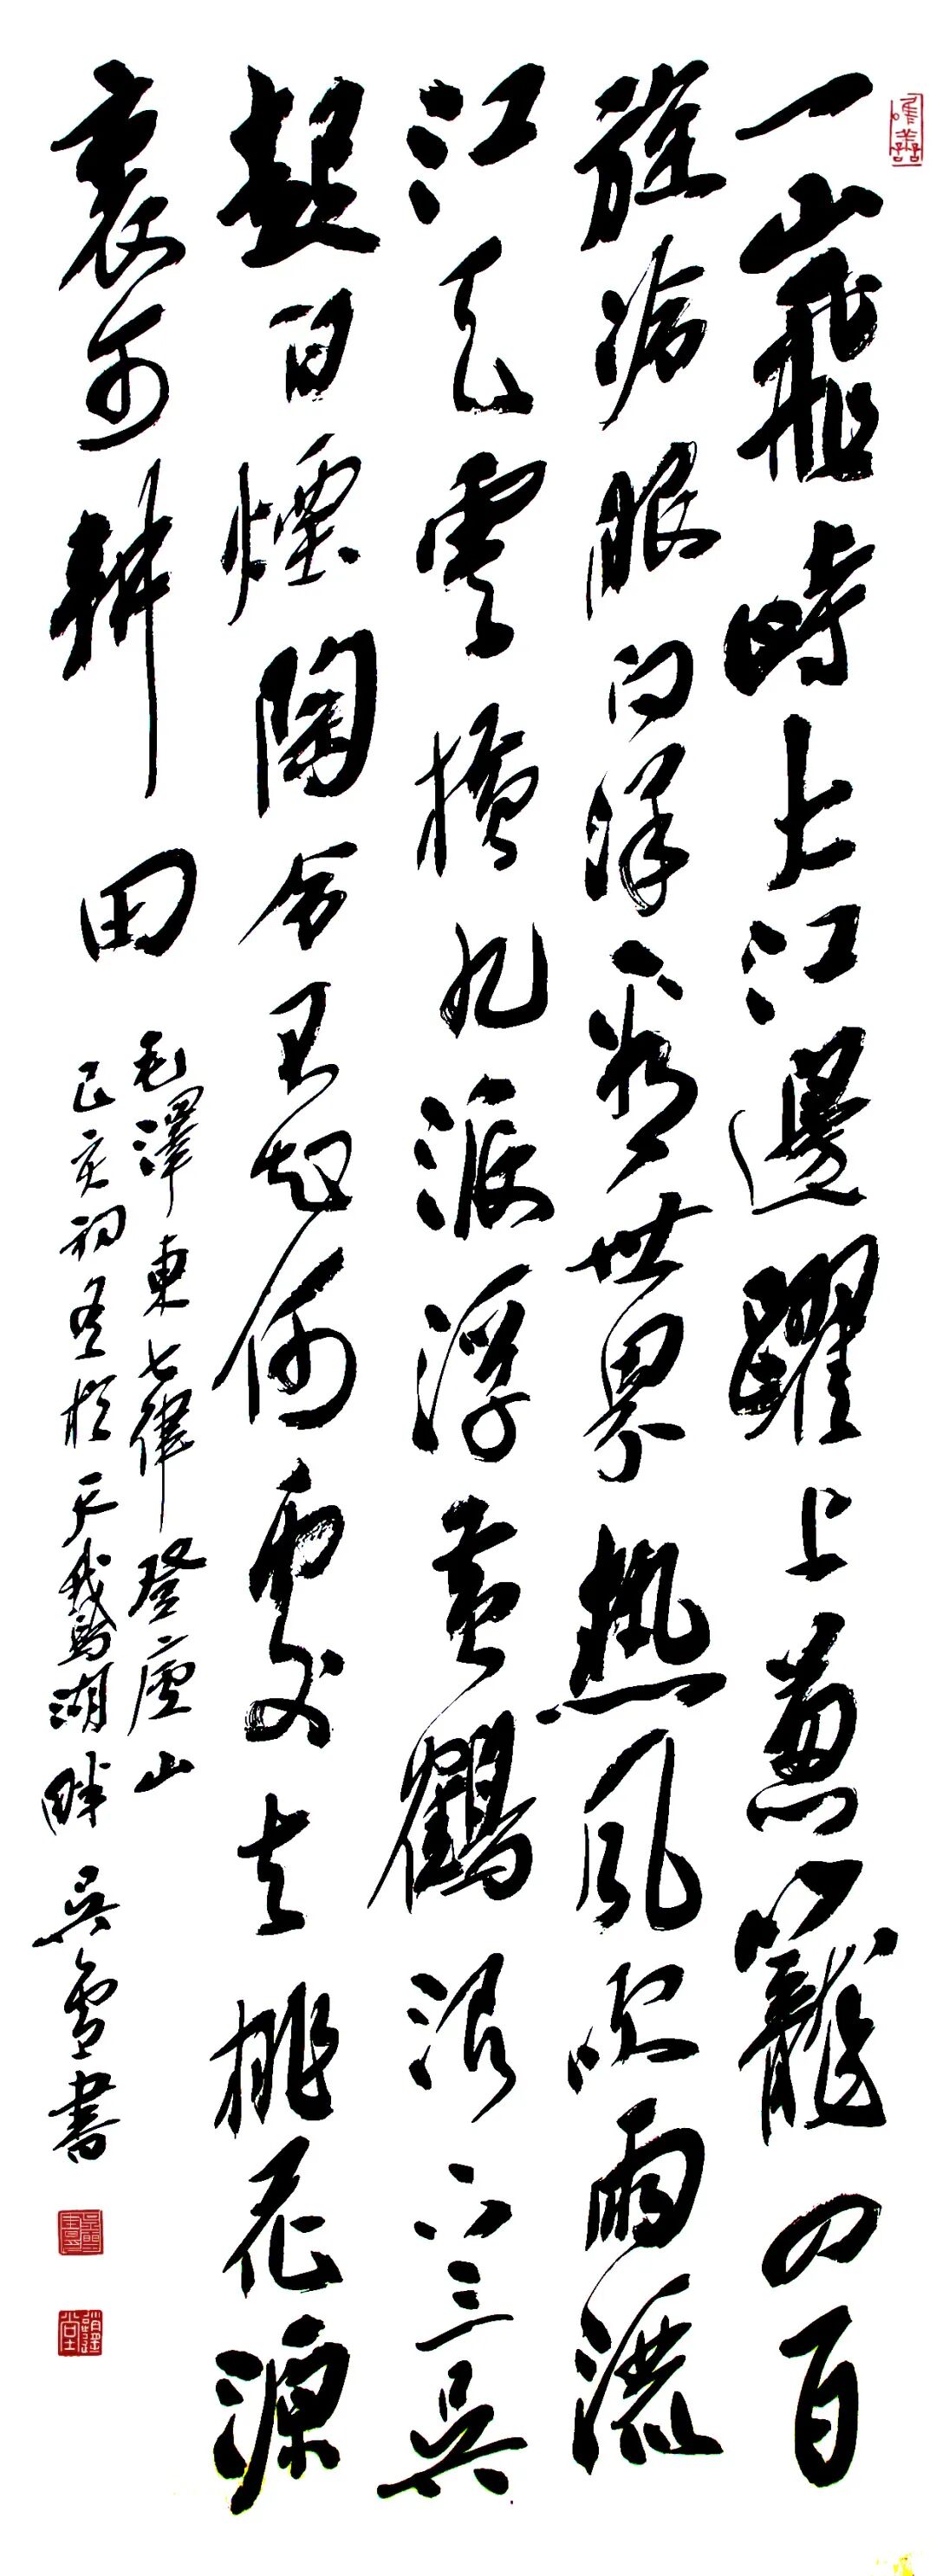 一山飛峙大江邊躍上蔥籠四百
旋冷眼向洋看世界熱風吹雨灑
江天雲橫九派浮黃鶴浪下三吳
起白煙陶令不知何處去桃花源
裏可耕田
毛澤東七律登廬山
己亥初春於天鵝湖畔吳雪書